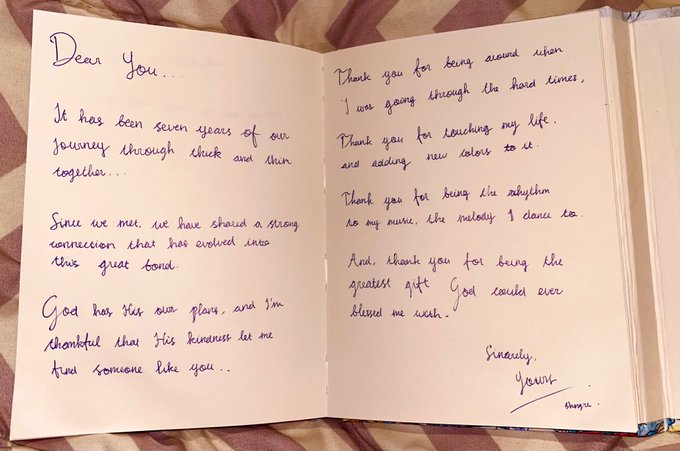 Dear You...
It has been seven years of our
journey through thick and thin
together...
Since we met, we have shared a strong
connection that has evolved into
this great bond.
God has His own plans, and I'm
thankful that His kindness let me
find someone like you..
Thank you for being around when
I was going through the hard times,
Thank you for touching my life,
and adding new colors to it.
Thank you for being the rhythm
to my music, the melody I dance to.
And, thank you for being the
greatest gift God could ever
blessed me wish.
Sincerely,
Yours